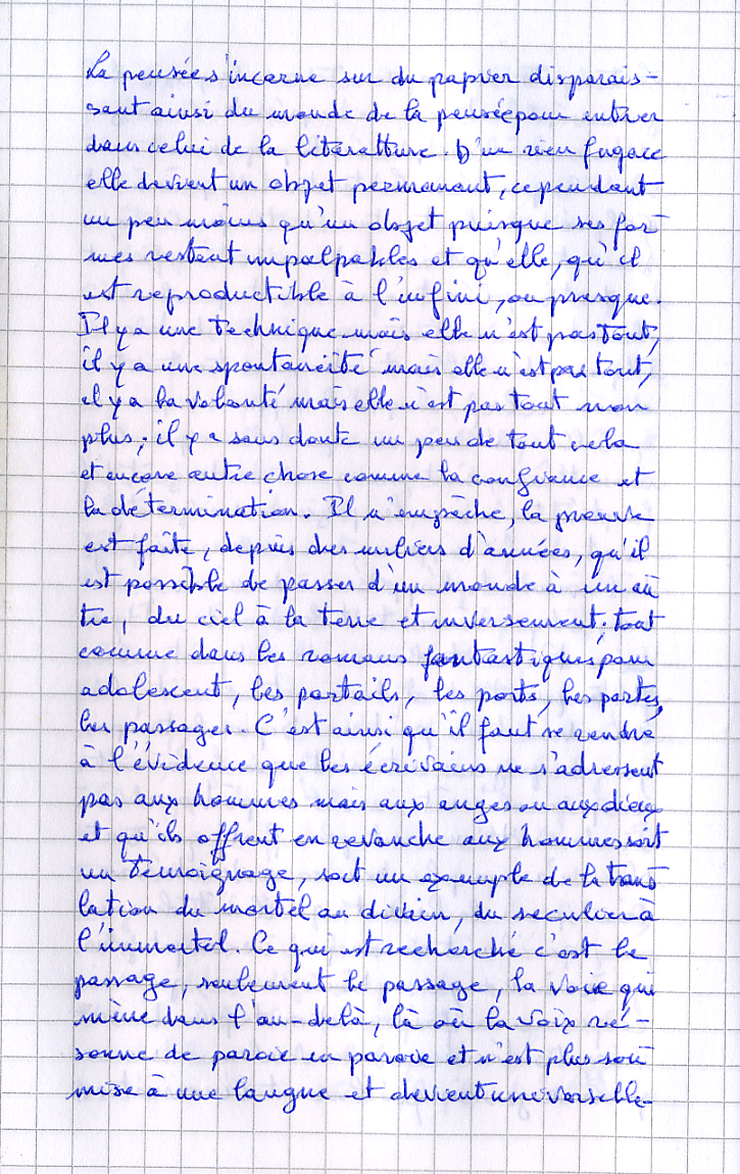 La pensée s'incarne sur du papier disparais-
sant ainsi du monde de la pensée pour entrer
dans celui de la litteratture. D'un rien fugace
elle devient un objet permanant, cependant
un peu moins qu'un objet puisque ses for
mes restent impalpables et qu'elle, qu'il
est reproductible à l'infini, ou presque.
Il y a une technique mais elle n'est pas tout,
il y a une spontanéité mais elle n'est pas tout,
il y a la volonté mais elle n'est pas tout non
plus; il y a sans doute un peu de tout cela
et encore autre chose comme la confiance et
la détermination. Il n'empêche, la preuve
est faite, depuis des milliers d'années, qu'il
est possible de passer d'un monde à un au
tre, du ciel à la terre et inversement; tout
comme dans les romans fantastiques pour
adolescent, les portails, les ports, les portes,
les passages. C'est ainsi qu'il faut se rendre
à l'évidence que les écrivains ne s'adressent
pas aux hommes mais aux anges ou aux dieux
et qu'ils offrent en revanche aux hommes soit
un témoignage, soit un exemple de la trans
lation du mortel au divin, du seculier à
l'immortel. Ce qui est recherché c'est le
passage, seulement le passage, la voie qui
mène dans l'au-delà, là où la voix ré-
sonne de paroie en paroie et n'est plus sou
mise à une langue et devient universelle.